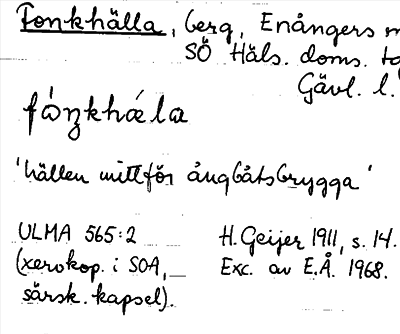 Fonkhälla, berg, Enångers
SÖ Häls. doms.
Gävl. l.
fåŋkhæla
'hällen mittför ångbåtsbrygga'
ULMA 565:2
(xerokop. i SOA,
särsk. kapsel).
H. Geijer 1911, s. 14.
Exc. av E.Å. 1968.